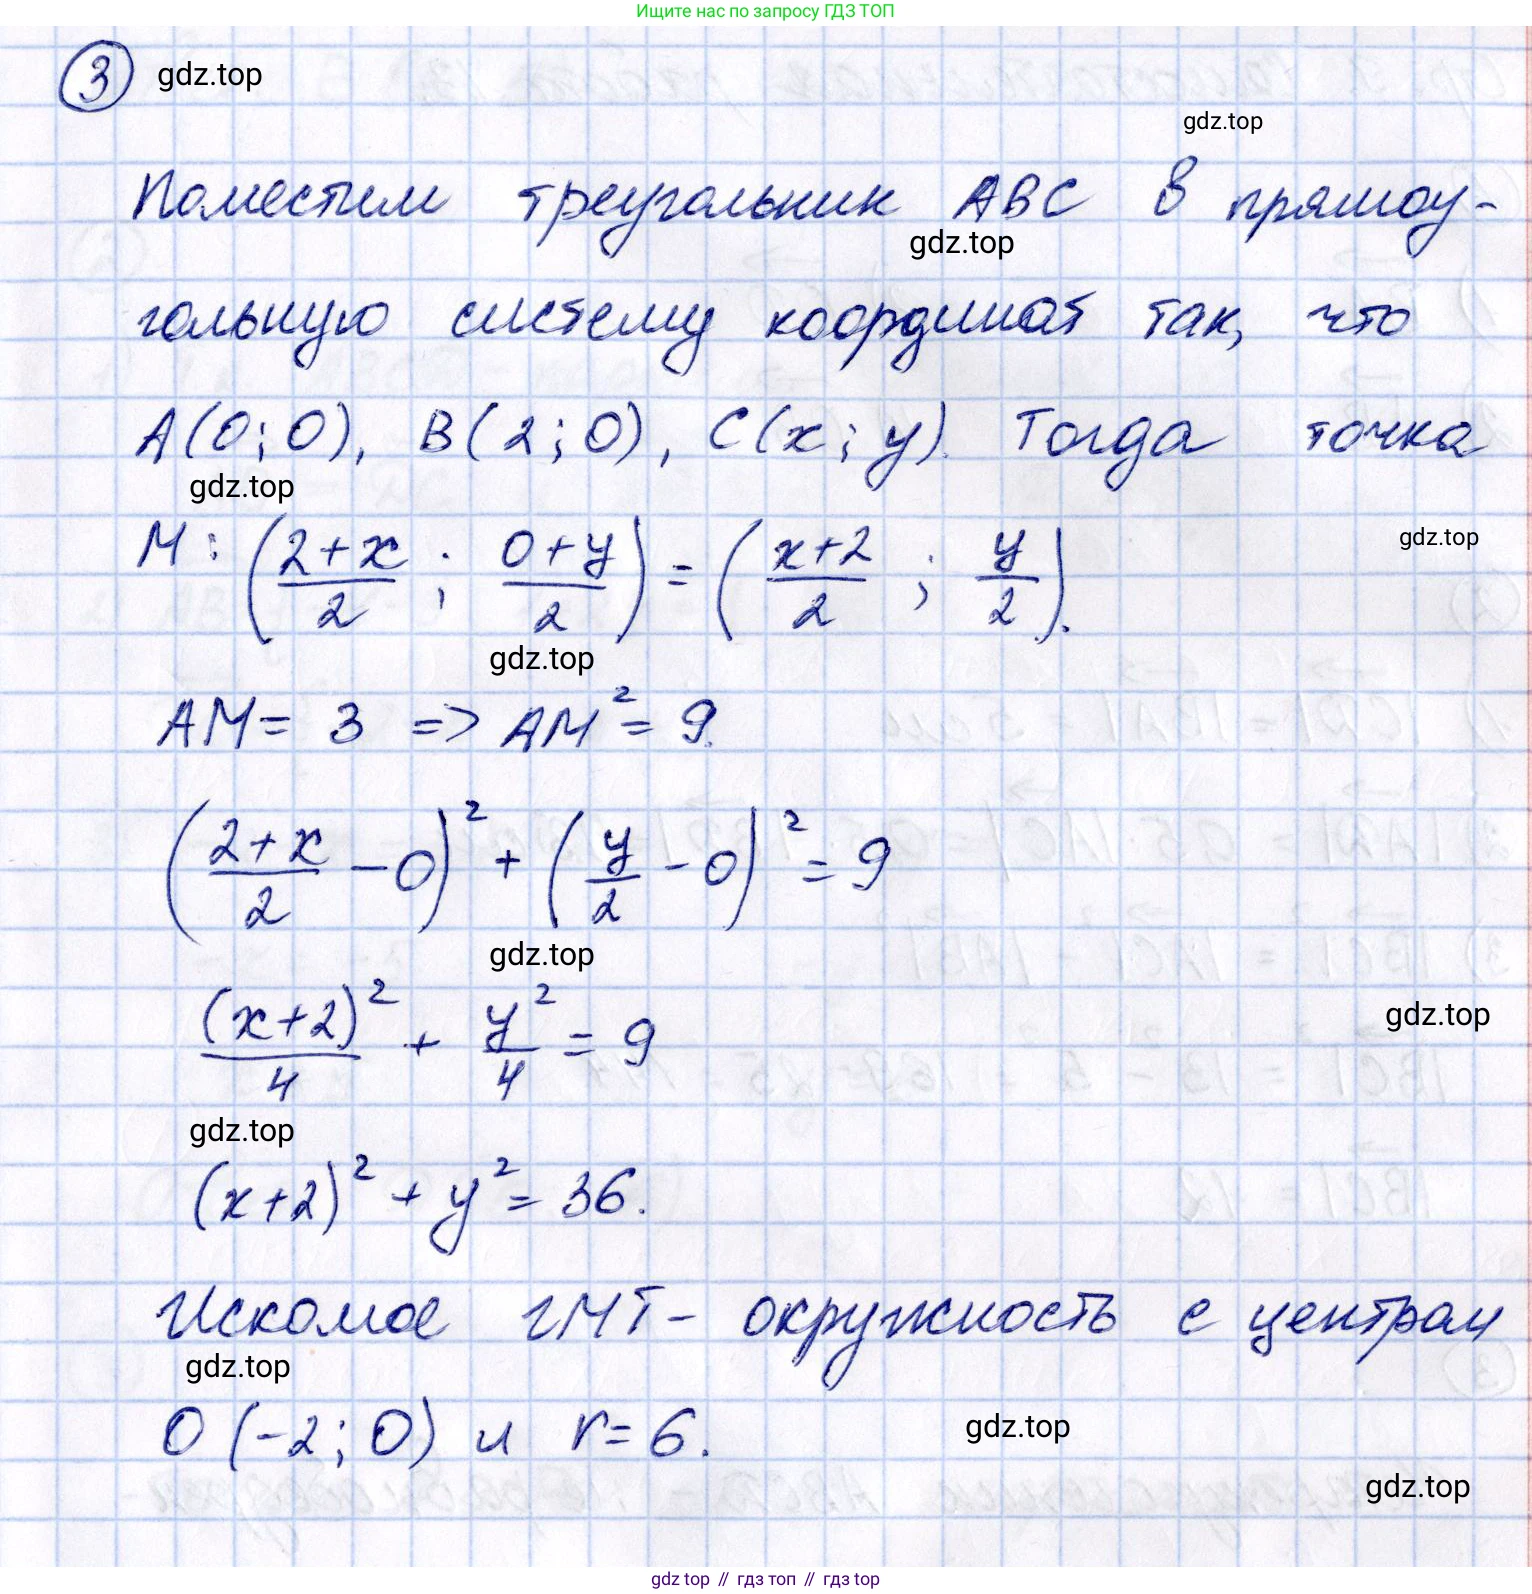 Ищите нас по запросу ГДЗ ТОП
3 gdz.top
gdz.top
Поместим треугольник ABC в прямоу-
gdz.top
гольную систему координат так, что
A(0;0), B(2;0), C(x;y). Тогда точка
gdz.top
M: ((2+x)/2 ; (0+y)/2) = ((x+2)/2 ; y/2).
gdz.top
gdz.top
AM = 3 => AM² = 9.
((2+x)/2 - 0)² + (y/2 - 0)² = 9
gdz.top
(x+2)²/4 + y²/4 = 9
gdz.top
gdz.top
(x+2)² + y² = 36.
Искомое ГМТ- окружность с центром
gdz.top
O (-2; 0) и r = 6.
gdz.top
gdz.top
gdz.top // гдз топ // гдз.top